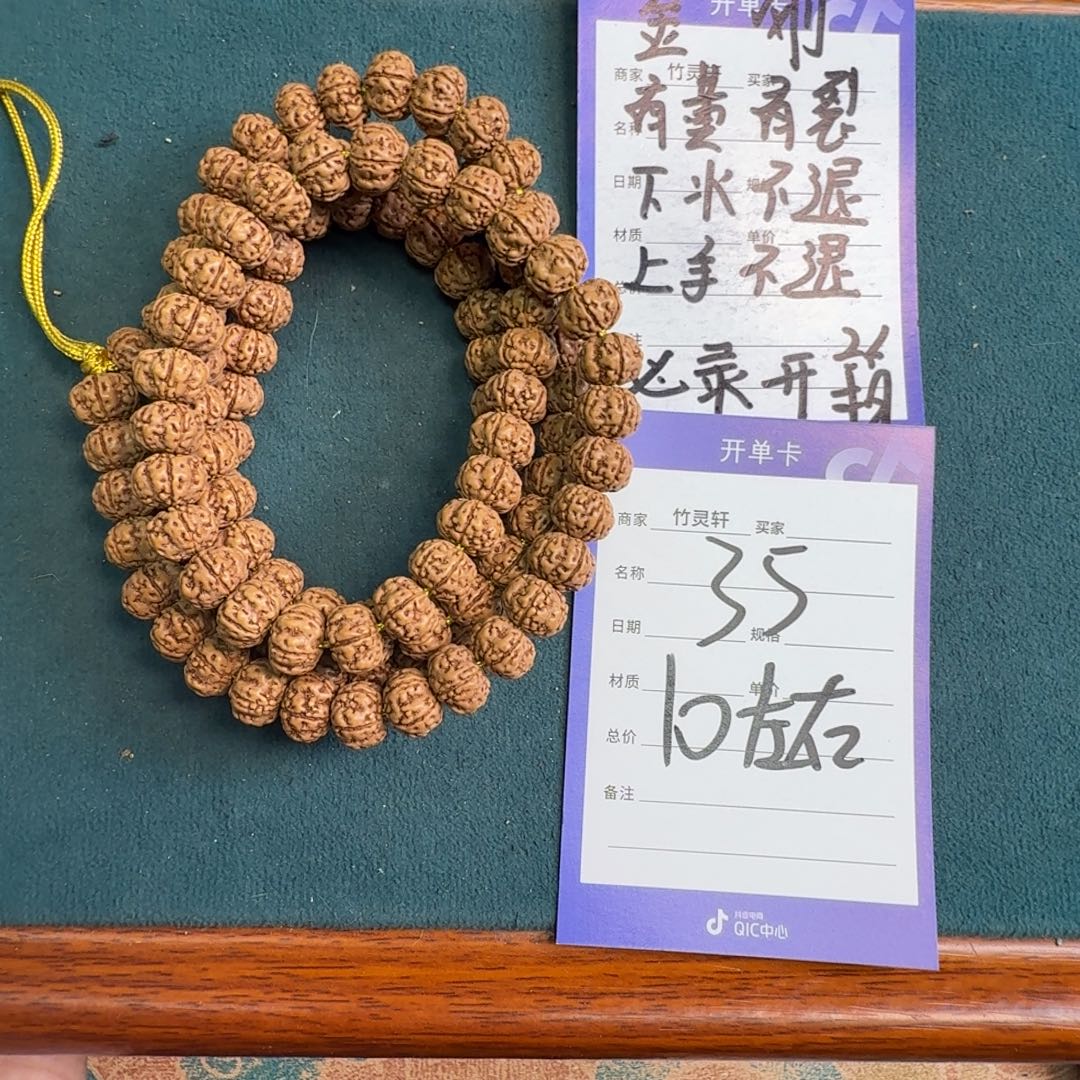 开单卡
金刚
商家 竹灵轩 买家
有蛋 有裂
名称
日期
下水 不退
材质 单价
上手 不退
必录开箱
开单卡
商家 竹灵轩 买家
名称
35
日期 规格
材质 单价
10左右
总价
备注
抖音电商
QIC中心